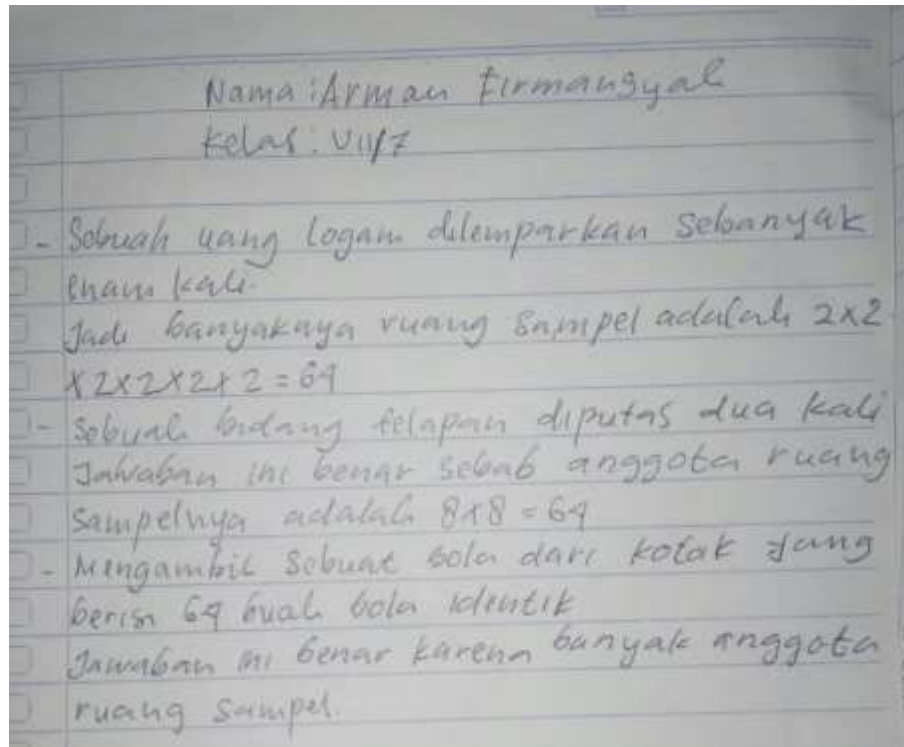 Nama : Arman Firmangyal
Kelas : VII/7
- Sebuah uang logam dilemparkan sebanyak
enam kali.
Jadi banyaknya ruang sampel adalah 2x2
x2x2x2x2 = 64
- Sebuah bidang delapan diputas dua kali
Jawaban ini benar sebab anggota ruang
sampelnya adalah 8x8 = 64
- Mengambil sebuat bola dari kotak yang
berisi 64 buah bola identik
Jawaban ini benar karena banyak anggota
ruang sampel.